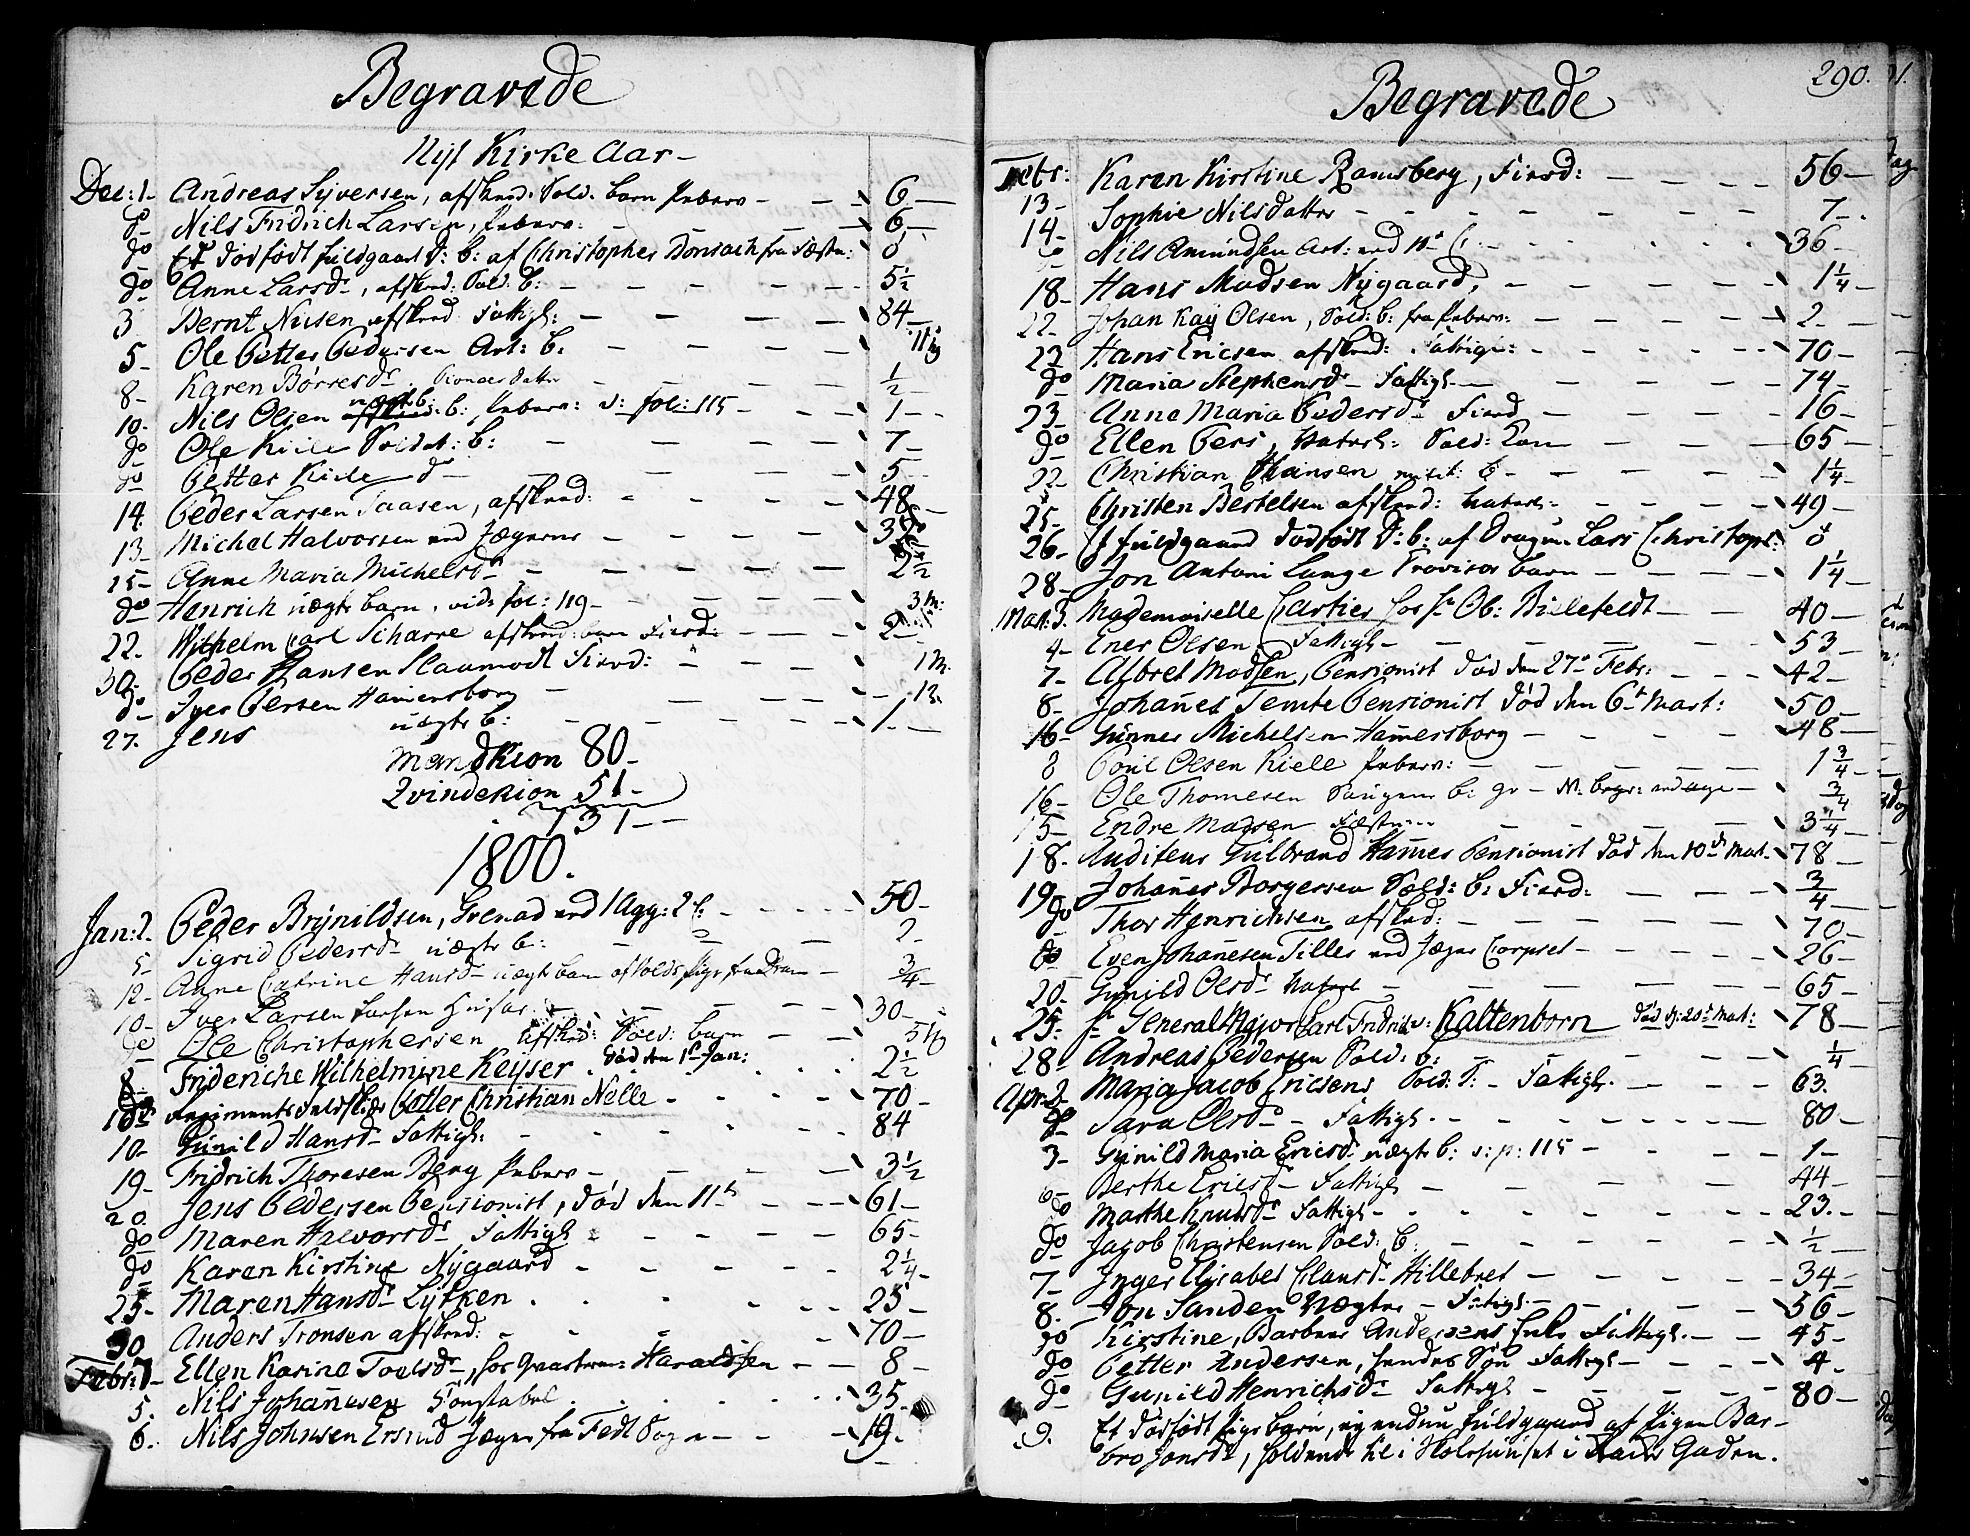 Begravede
Nyt Kirke Aar
Dec: 1. Andreas Syversen, afskend: Sold. barn Peberv - 6
do Nils Fridrich Larsen, Peberv: 6
do Et dødfødt fuldgaaet D: b: af Christopher fra Fæstn: 0
do Anne Larsdr, afskend: Sold: b: 5½
3 Bernt Nilsen afskend Fattigh: 84
5 Ole Petter Pedersen Art: b:
8 Karen Børresdr ½
10 Nils Olsen uægte b: b: Peberv: v: fol: 115 1
do Ole Kiele Soldat: b: 7
do Petter Kiele do 5
14 Peder Larsen Taasen, afskend: 48
13 Michel Halvorsen ved Jægerne
15 Anne Maria Michelsdr 2½
do Henrich uægte barn, vide fol: 119 3 M:
22. Wilhelm Carl Scharre afskend: barn Fierd: 2
30 Peder Hansen Fierd: 1 M.
do Iver Persen Hamersborg
27. Jens uægte b: 1
Mandkion 80
Qvindekion 51
131
1800.
Jan: 2. Peder Brynildsen, Grenad ved 1 Agg: 2 C: 50
5 Sigrid Pedersdr uægte b: 2
12 Anne Catrine Hansdr uægte barn af Solds Pige fra Dram ¾
10 Iver Larsen Husar 30
do Ole Christophersen Afskend: Sold: barn
8 Frideriche Wilhelmine Keyser. død den 1ste Jan: 2½
Regiments Feldskiær Petter Christian Nelle 70
10 Gunild Hansdr Fattigh: 84
19 Fridrich Thoresen Berg Peberv 3½
20. Jens Pedersen Pensionist, død den 11te 61
do Maren Halvorsdr Fattigh 65
do Karen Kirstine Nygaard 2¼
25 Maren Hansdr Lytken 25
30 Anders Tronsen afskend: 70
Febr: 1 Ellen Karine Toelsdr, hos Qvarterm: Haraldsen 8
5. Nils Johannesen Constabel 35
6. Nils Johnsen Jæger fra 19
Begravede
290.
Febr: Karen Kirstine Ramsberg, Fierd: 56
13 Sophie Nilsdatter 7
14 Nils Amundsen Art: ved C: 36
18 Hans Madsen Nygaard, 1¼
22 Johan Kay Olsen, Sold: b: fra Peberv: 2
22 Hans Ericsen afskend: Fattigh: 70
do Maria Stephensdr Fattigh 74
23 Anna Maria Pedersdr Fierd 16
do Ellen Pers, Waterl: Sold: Kone 65
22 Christian Hansen b 1¼
25 Christen Bertelsen afskend: Waterl: 49
26 Et fuldgaaed dødfødt D: b: af Dragun Lars Christoph: 0
28 Jon Antoni Lange Provisor barn 1¼
Mart: 3. Mademoiselle Cartier hos Hr Ob: Bielefeldt 40
4 Ener Olsen Fattigh 53
7 Albret Madsen, Pensionist død den 27de Febr: 42
8 Johannes Temte Pensionist død den 6te Mart: 50
16 Gunner Michelsen Hamersborg 48
8 Povil Olsen Kiele Peberv: 1¾
16 Ole Thomesen b: 3/4
15 Endre Madsen Fæstn 3¾
18. Auditeur Gulbrand Hammer Pensionist død den 10de Mart 78
19 Johannes Borgersen Sold: b: Fierd: ¾
do Thor Henrichsen afskend: 70
do Even Johannesen Tiller ved Jæger Corpset 26
20 Gunild Olsdr Waterl 65
25 Hr General Major Carl Fridrich v: Kaltenborn død d: 20de Mart: 78
28 Andreas Pedersen Sold: b: ¼
Apr: 2 Maria Jacob Ericsens Sold: Fattigh. 63.
do Sara Olsdr Fattigh 80
3 Gunild Maria Ericsdr uægte b: v: p: 115 1
6 Berthe Ericsdr Fattigh 44
do Marthe Knudsdr Fattigh 23.
do Jacob Christensen Sold: b: ½
7 Inger Elisabet Clausdr Hillebret 34
8. Jon Sanden Vægter Fattigh 56
do Kirstine, Barbeer Andersens Enke Fattigh 45
do Petter Andersen, hendes Søn Fattigh 4
do Gunild Henrichsdr Fattigh 80
9. Et dødfødt Pige barn, ey endnu fuldgaaed af Pigen Bar-
bro Jonsdr, holdende til i Holehuuset i Gaden.